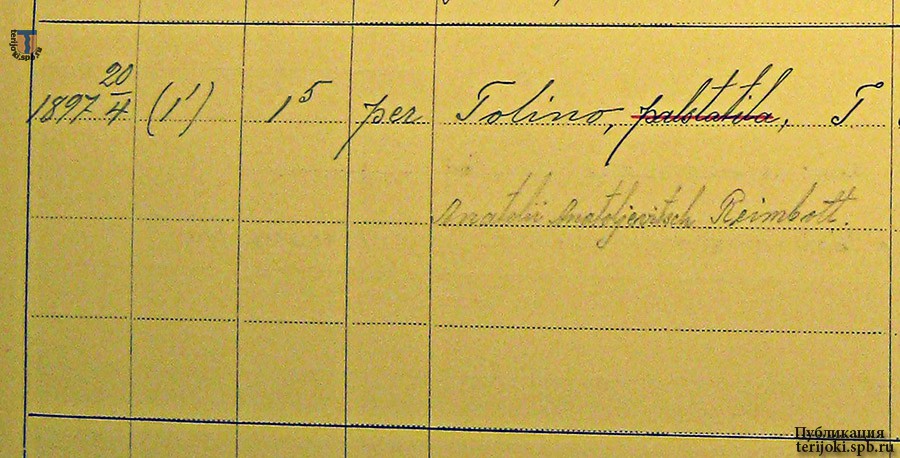 terijoki.spb.ru
1897 20/4 (1') 1⁵ per Tolino, palstatila, T
Anatolii Anatoljevitsch Reimbott.
Публикация
terijoki.spb.ru